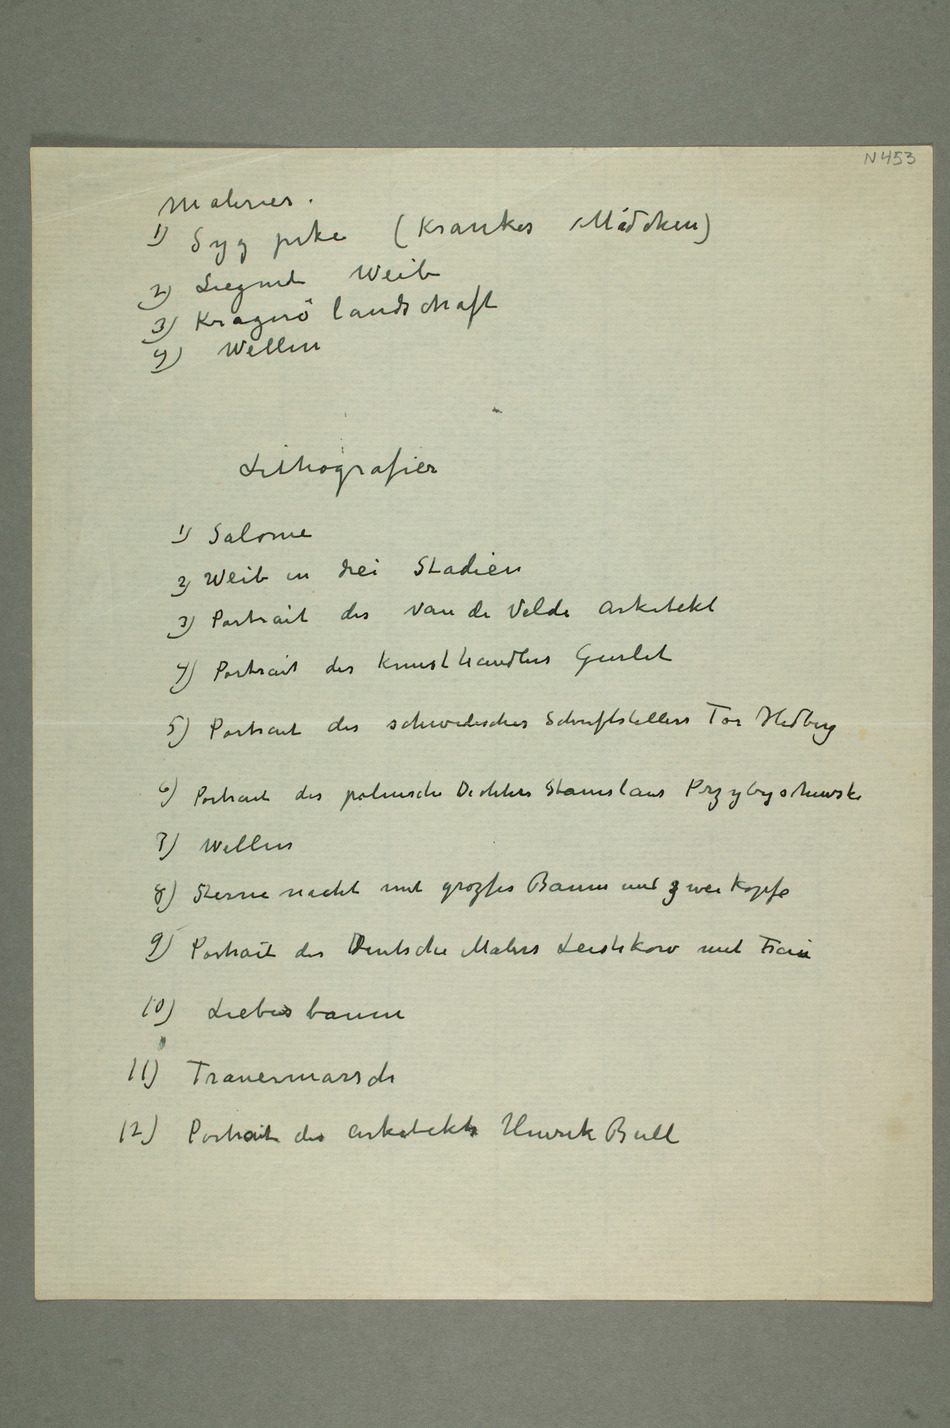 N 453
Malerier.
1) Syg pike (Krankes Mädchen)
2) Liegnde Weib
3) Kragerö landschaft
4) Wellen
Lithografier
1) Salome
2) Weib in drei Stadien
3) Portrait des Van de Velde arkitekt
4) Portrait des Kunsthandlers Gurlit
5) Portrait des schwedisches Schriftstellers Tor Hedberg
6) Portrait des polnische Dichters Stanislaus Przybyschewski
7) Wellen
8) Sterne nacht mit grozses Baum und zwei Kopfe
9) Portrait des Deutsche Malers Leistikow mit Frau
10) Liebesbaum
11) Trauermarsch
12) Portrait des arkitekts Henrik Bull